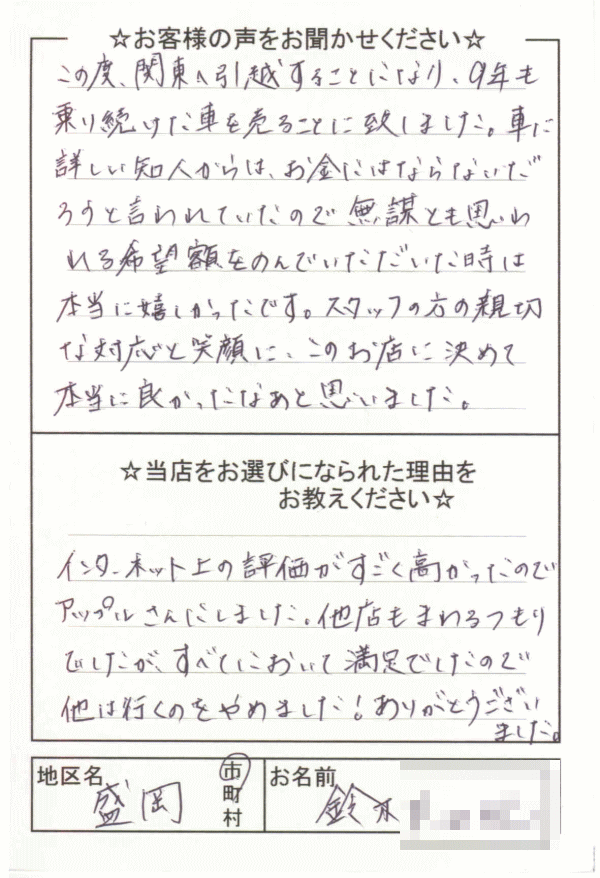 ☆お客様の声をお聞かせください☆
この度、関東へ引越することになり、9年も
乗り続けた車を売ることに致しました。車に
詳しい知人からは、お金にはならないだ
ろうと言われていたので無謀とも思わ
れる希望額をのんでいただいた時は
本当に嬉しかったです。スタッフの方の親切
な対応と笑顔に、このお店に決めて
本当に良かったなぁと思いました。
☆当店をお選びになられた理由を
お教えください☆
インターネット上の評価がすごく高かったので
アップルさんにしました。他店もまわるつもり
でしたが、すべてにおいて満足でしたので
他は行くのをやめました!ありがとうござい
ました。
地区名 盛岡 市町村 お名前 鈴木